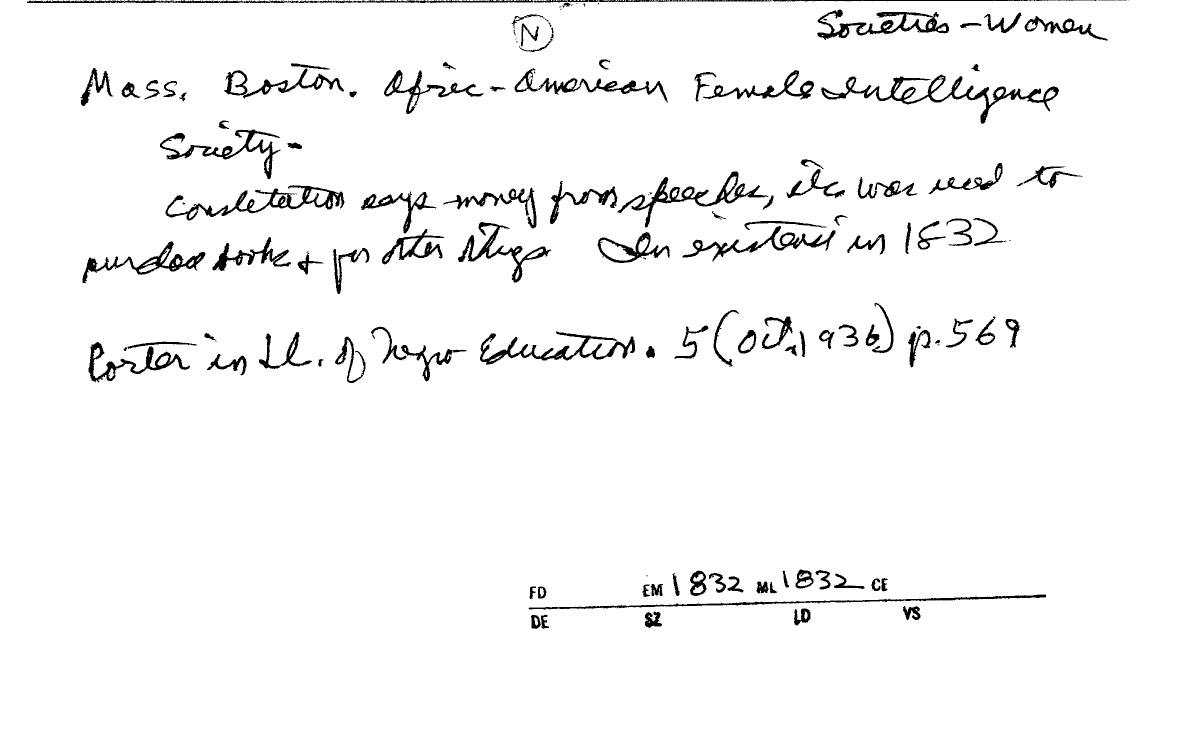 N
Societies - Women
Mass. Boston. Afric-American Female Intelligence
Society -
Constetution says money from speeches, etc. was used to
purchase books & for other things In existence in 1832
Porter in Jl. of Negro Education. 5 (Oct. 1936) p. 569
FD EM 1832 ML 1832 CE
DE SZ LD VS